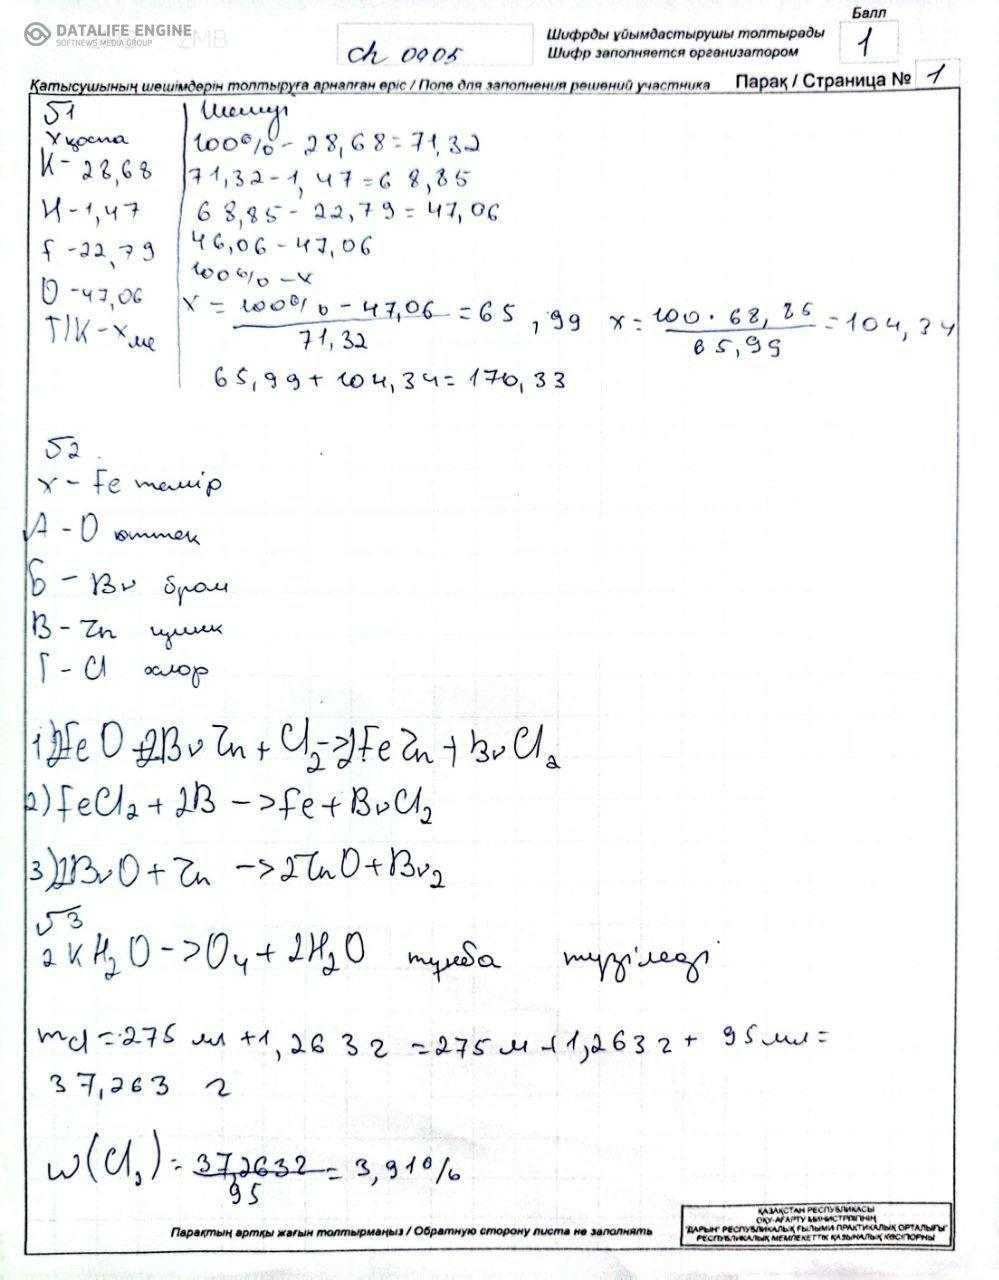 DATALIFE ENGINE
SOFTNEWS MEDIA GROUP
Балл
Шифрды ұйымдастырушы толтырады
Шифр заполняется организатором
ch 0905
1
Қатысушының шешімдерін толтыруға арналған өріс / Поле для заполнения решений участника
Парақ / Страница № 1
№1
X қоспа
K - 28,68
H - 1,47
f - 22,79
O - 47,06
Т/К - X
Шешуі
100% - 28,68 = 71,32
71,32 - 1,47 = 68,85
68,85 - 22,79 = 47,06
46,06 - 47,06
100% - x
x = 100% - 47,06 / 71,32 = 65,99 x = 100 · 68,85 / 65,99 = 104,34
65,99 + 104,34 = 170,33
№2.
X - Fe темір
А - O оттек
Б - Br бром
В - Zn цинк
Г - Cl хлор
1) 2FeO + 2BrZn + Cl2 -> 2FeZn + BrCl2
2) FeCl2 + 2B -> Fe + BrCl2
3) 2BrO + Zn -> 2ZnO + Br2
№3
2KH2O -> O4 + 2H2O тұнба түзіледі
md = 275 мл + 1,263 г = 275 м + 1,263 г + 95 мл =
37,263 г
w(Cl2) = 37,2632 / 95 = 3,91%
Парақтың артқы жағын толтырмаңыз / Обратную сторону листа не заполнять
ҚАЗАҚСТАН РЕСПУБЛИКАСЫ
ОҚУ-АҒАРТУ МИНИСТРЛІГІНІҢ
"ДАРЫН" РЕСПУБЛИКАЛЫҚ ҒЫЛЫМИ-ПРАКТИКАЛЫҚ ОРТАЛЫҒЫ"
РЕСПУБЛИКАЛЫҚ МЕМЛЕКЕТТІК ҚАЗЫНАЛЫҚ КӘСІПОРНЫ